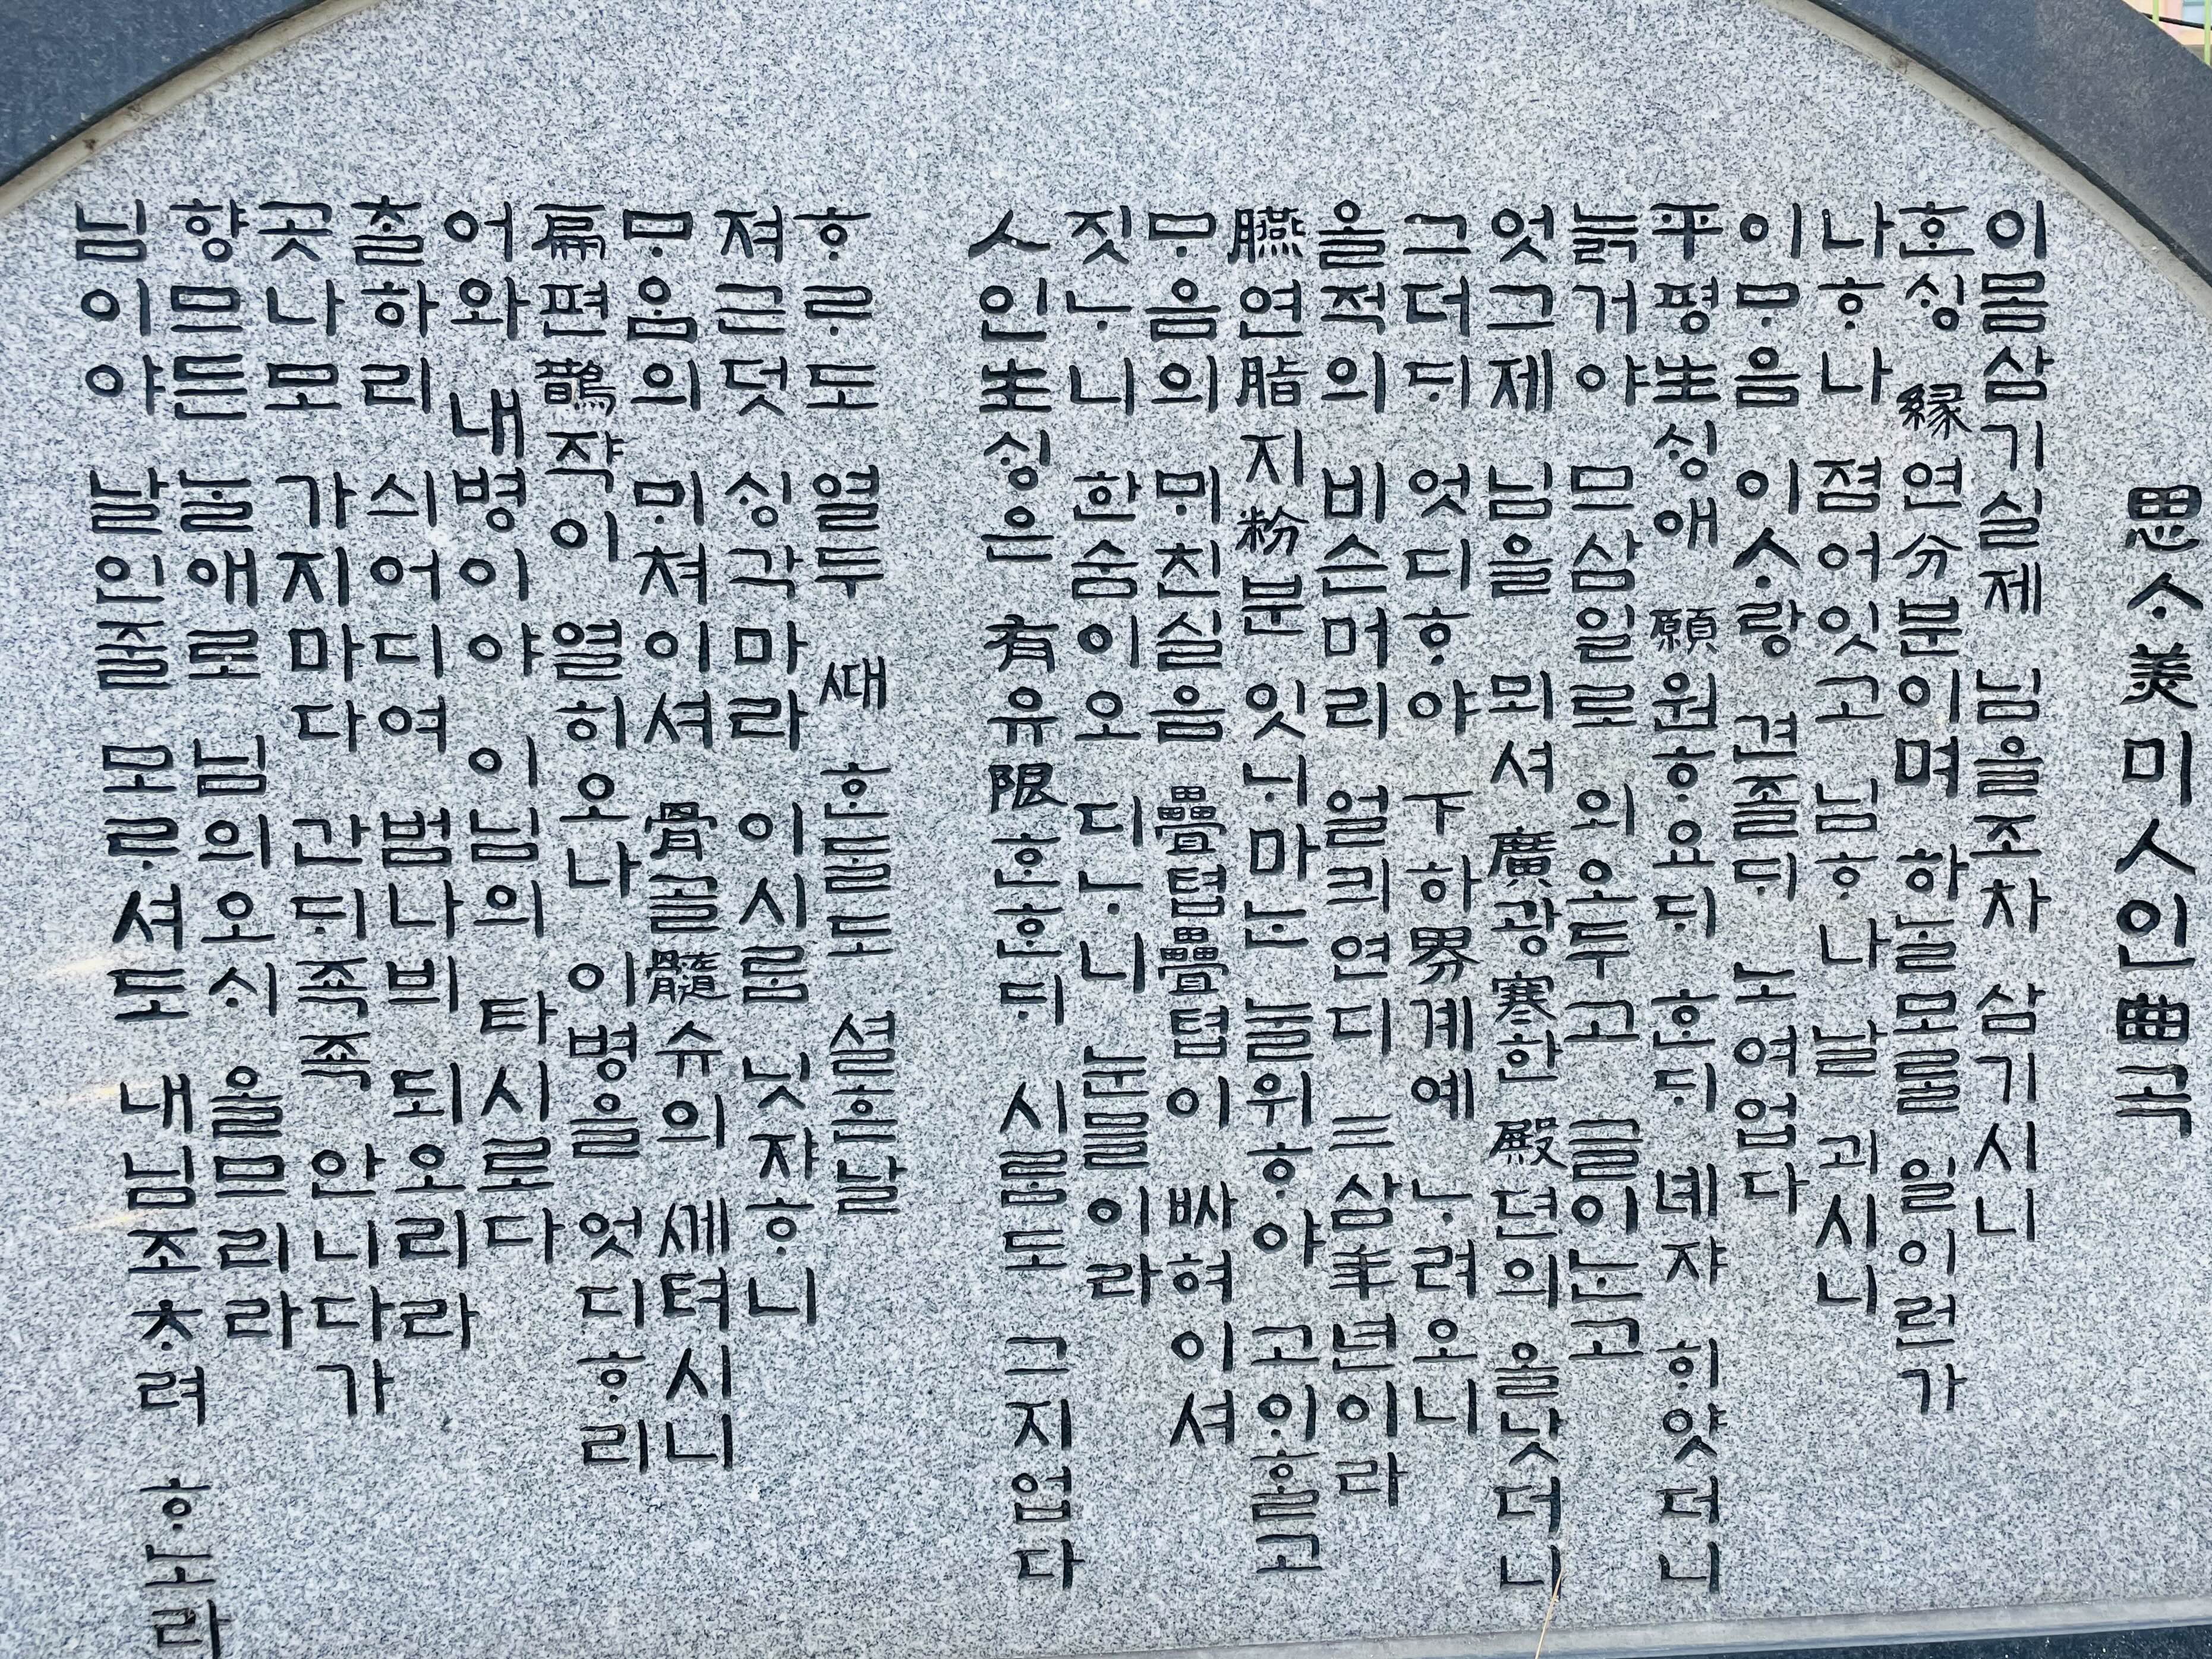 思ᄉᆞ美미人인曲곡
이몸삼기실제 님을조차 삼기시니
ᄒᆞᆫᄉᆡᆼ 緣연分분이며 하ᄂᆞᆯ모ᄅᆞᆯ 일이런가
나ᄒᆞ나 졈어잇고 님ᄒᆞ나 날 괴시니
이ᄆᆞ음 이ᄉᆞ랑 견졸ᄃᆡ 노여업다
平평生ᄉᆡᆼ애 願원ᄒᆞ요ᄃᆡ ᄒᆞᆫᄃᆡ 녜쟈 ᄒᆡ얏더니
늙거야 므삼일로 외오두고 글이ᄂᆞᆫ고
엇그제 님을 뫼셔 廣광寒한殿뎐의 올낫더니
그더ᄃᆡ 엇디ᄒᆞ야 下하界계예 ᄂᆞ려오니
올적의 비슨머리 얼킈연디 三삼年년이라
臙연脂지粉분 잇ᄂᆡ마ᄂᆞᆫ 눌위ᄒᆞ야 고이ᄒᆞᆯ고
ᄆᆞ음의 ᄆᆡ친실음 疊텹疊텹이 ᄡᅡ혀이셔
짓ᄂᆞ니 한숨이오 디ᄂᆞ니 눈믈이라
人인生ᄉᆡᆼ은 有유限ᄒᆞᆫᄒᆞᆫᄃᆡ 시ᄅᆞᆷ도 그지업다
ᄒᆞᄅᆞ도 열두 ᄯᅢ ᄒᆞᆫᄃᆞᆯ도 셜ᄒᆞᆫ날
져근덧 ᄉᆡᆼ각마라 이시ᄅᆞᆷ 닛쟈ᄒᆞ니
ᄆᆞ음의 ᄆᆡ쳐이셔 骨골髓슈의 ᄢᅦ텨시니
扁편鵲쟉이 열히오나 이병을 엇디ᄒᆞ리
어와 내병이야 이님의 타시로다
ᄎᆞᆯ하리 싀어디여 범나븨 되오리라
곳나모 가지마다 간ᄃᆡ죡죡 안니다가
향므든 ᄂᆞᆯ애로 님의오ᄉᆡ 올므리라
님이야 날인줄 모ᄅᆞ셔도 내님조ᄎᆞ려 ᄒᆞ노라